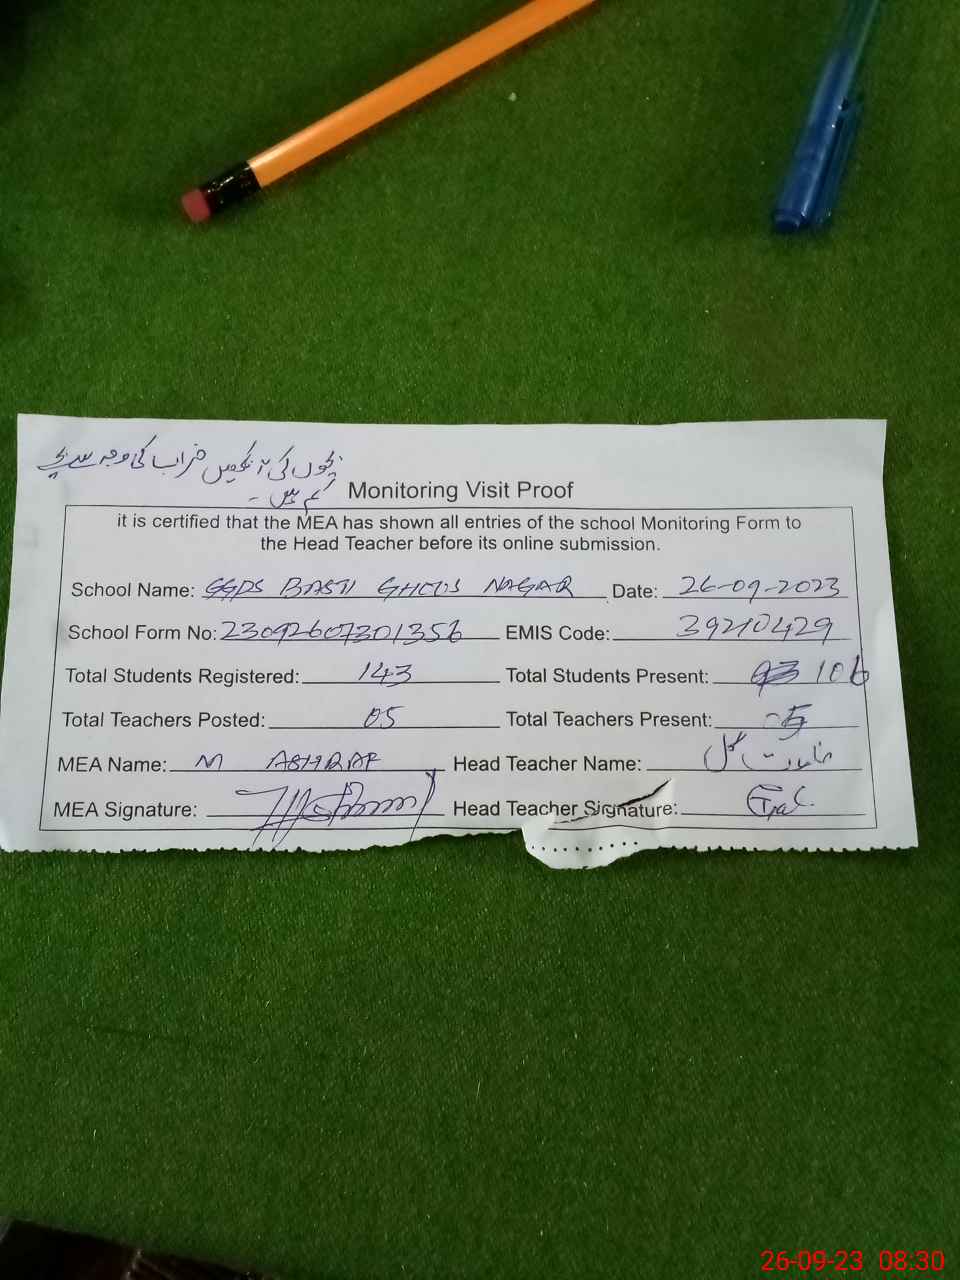 بچوں کی آنکھیں خراب کی وجہ سے بچے
کم ہیں -
Monitoring Visit Proof
it is certified that the MEA has shown all entries of the school Monitoring Form to
the Head Teacher before its online submission.
School Name: GGPS BASTI GHOUS NAGAR Date: 26-09-2023
School Form No: 23092607301356 EMIS Code: 39210429
Total Students Registered: 143 Total Students Present: 106
Total Teachers Posted: 05 Total Teachers Present: 05
MEA Name: M ASHRAF Head Teacher Name: گل
MEA Signature: Head Teacher Signature:
26-09-23 08:30